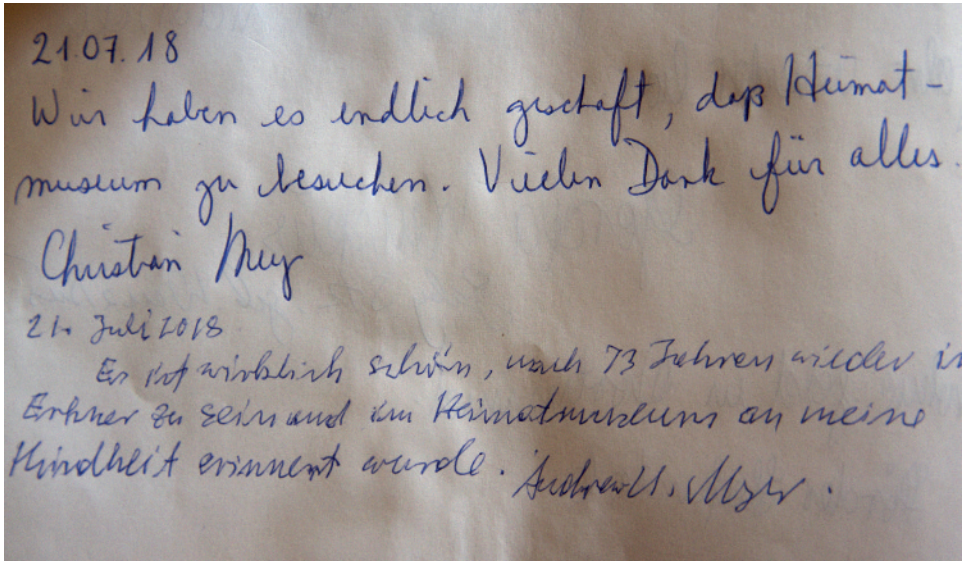 21.07.18
Wir haben es endlich geschaft, daß Heimat-
museum zu besuchen. Vielen Dank für alles.
Christian
21. Juli 2018
Es ist wirklich schön, nach 73 Jahren wieder in
Erkner zu sein und im Heimatmuseum an meine
Kindheit erinnert wurde.